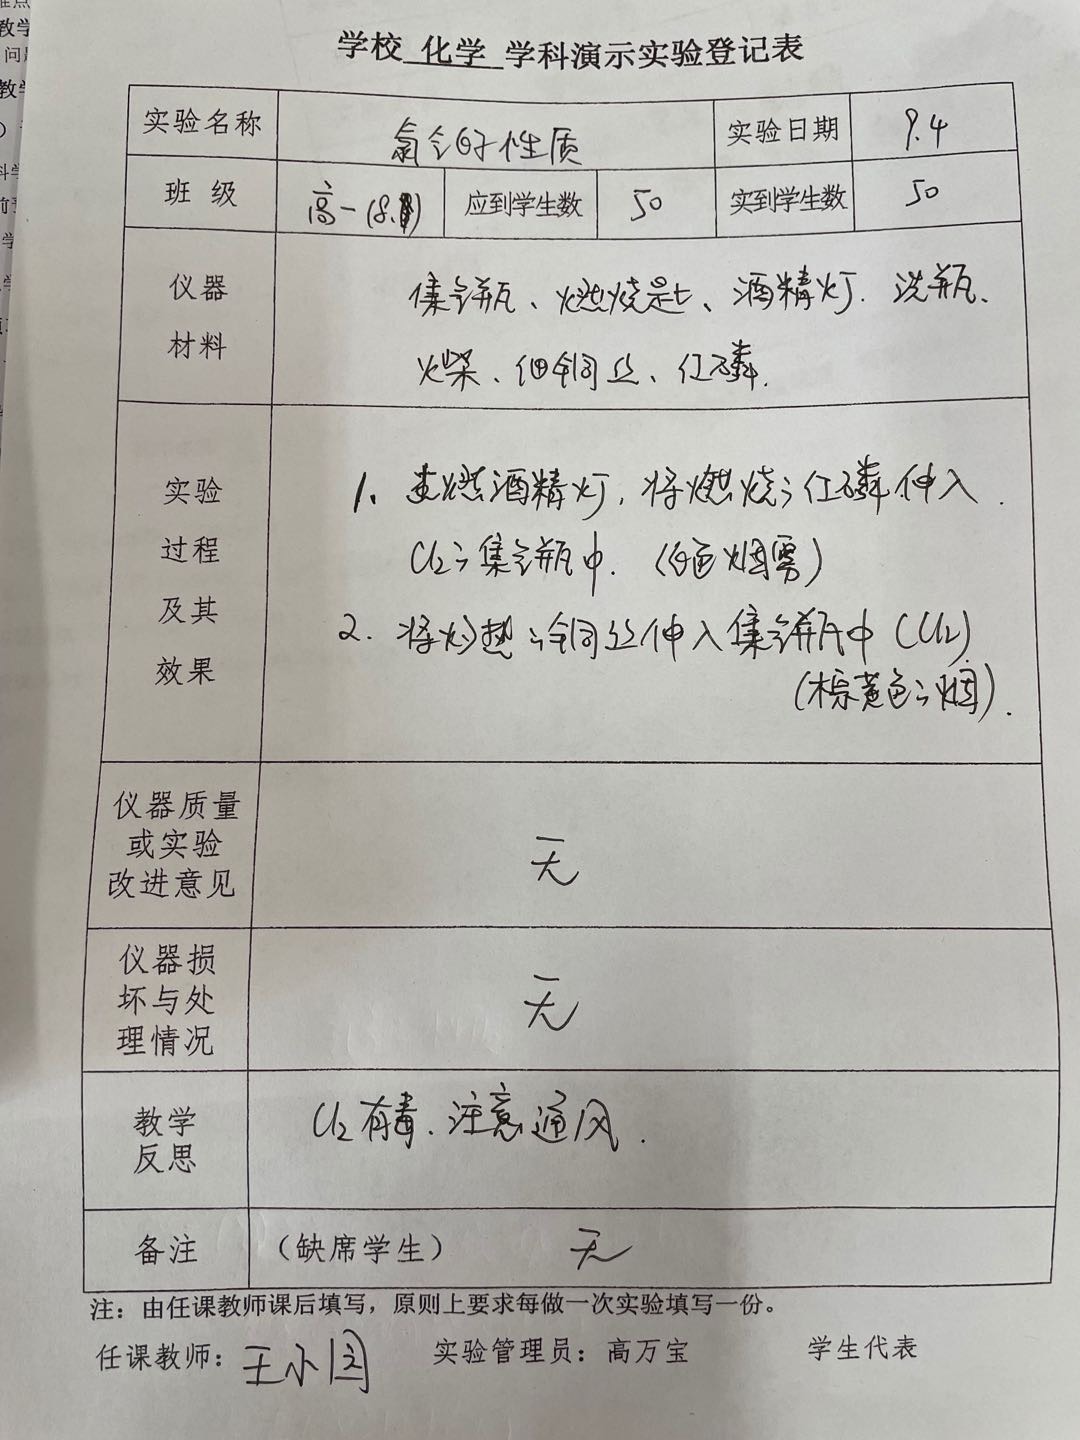 学校 化学 学科演示实验登记表
实验名称 氯气的性质 实验日期 9.4
班 级 高一(8. ) 应到学生数 50 实到学生数 50
仪器
材料
集气瓶、燃烧匙、酒精灯、洗瓶、
火柴、细铜丝、红磷.
实验
过程
及其
效果
1、点燃酒精灯,将燃烧的红磷伸入
Cl₂的集气瓶中. (白色烟雾)
2. 将灼热的铜丝伸入集气瓶中(Cl₂)
(棕黄色的烟).
仪器质量
或实验
改进意见
无
仪器损
坏与处
理情况
无
教学
反思
Cl₂有毒、注意通风.
备注 (缺席学生) 无
注:由任课教师课后填写,原则上要求每做一次实验填写一份。
任课教师:王小 实验管理员:高万宝 学生代表